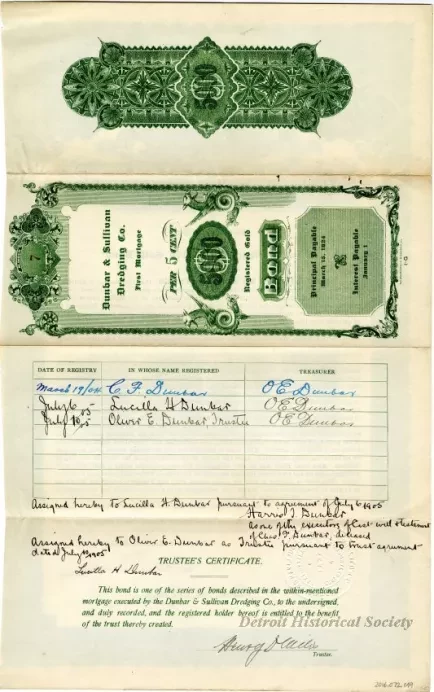 $5000
7
Dunbar & Sullivan
Dredging Co.
First Mortgage
PER 5 CENT
$5000
Registered Gold
Bond
Principal Payable
March 12, 1924
Interest Payable
January 1
DATE OF REGISTRY IN WHOSE NAME REGISTERED TREASURER
March 19/04 C. F. Dunbar O E Dunbar
July 6 05 Lucilla H Dunbar O E Dunbar
July 10 05 Oliver E. Dunbar, Trustee O E Dunbar
Assigned hereby to Lucilla H. Dunbar pursuant to agreement of July 6 1905
Harris T. Dunbar
as one of the executors of last will & testament
of Chas. F. Dunbar, deceased
Assigned hereby to Oliver E. Dunbar as Trustee pursuant to trust agreement
dated July 1905
Lucilla H Dunbar
TRUSTEE'S CERTIFICATE.
This bond is one of the series of bonds described in the within-mentioned
mortgage executed by the Dunbar & Sullivan Dredging Co., to the undersigned,
and duly recorded, and the registered holder hereof is entitled to the benefit
of the trust thereby created.
Detroit Historical Society
Henry
Trustee.
2016.072.049